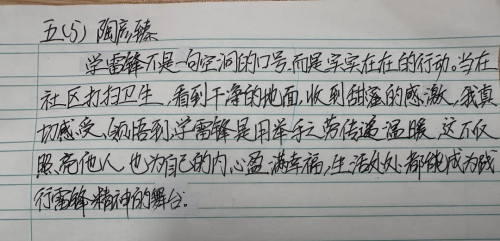 五(5) 陶彦臻
学雷锋不是一句空洞的口号,而是实实在在的行动。当在
社区打扫卫生,看到干净的地面,收到甜蜜的感激,我真
切感受、领悟到,学雷锋是用举手之劳传递温暖,这不仅
照亮他人,也为自己的内心盈满幸福,生活处处都能成为我
行雷锋精神的舞台。